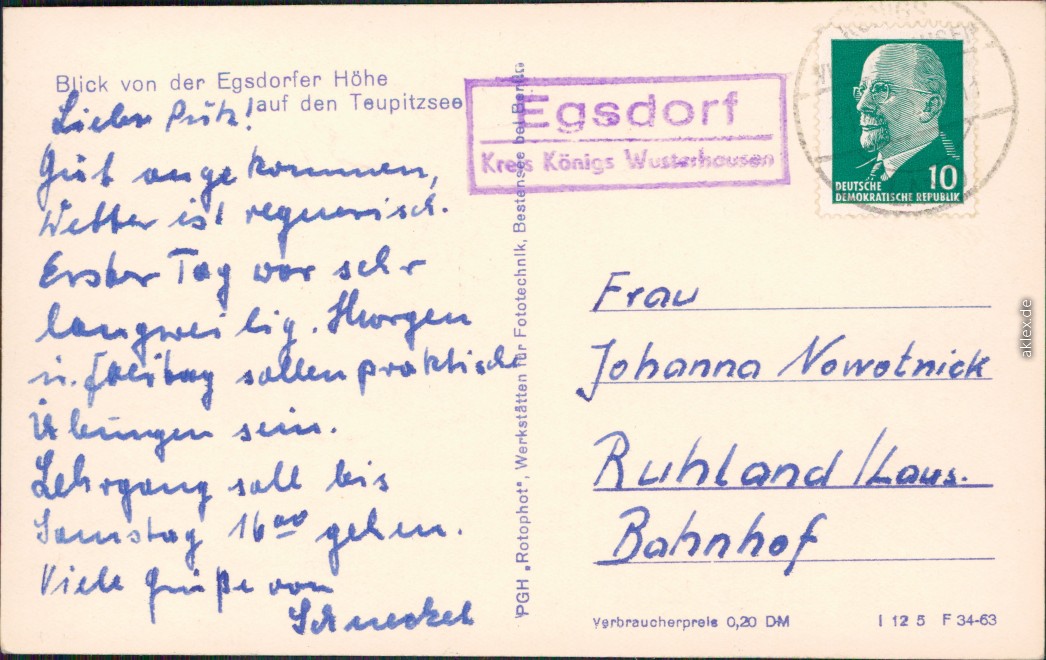 Blick von der Egsdorfer Höhe
auf den Teupitzsee
Lieber Putz!
Gut angekommen,
Wetter ist regnerisch.
Erster Tag war sehr
langweilig. Morgen
u. Freitag sollen praktische
Übungen sein.
Lehrgang soll bis
Samstag 16⁰⁰ gehen.
Viele Grüße von
Schneckel
PGH „Rotophot", Werkstätten für Fototechnik, Bestensee bei Berlin
Egsdorf
Kreis Königs Wusterhausen
10
DEUTSCHE
DEMOKRATISCHE REPUBLIK
Frau
Johanna Nowotnick
Ruhland /Laus.
Bahnhof
Verbraucherpreis 0,20 DM
I 12 5 F 34-63
aklex.de